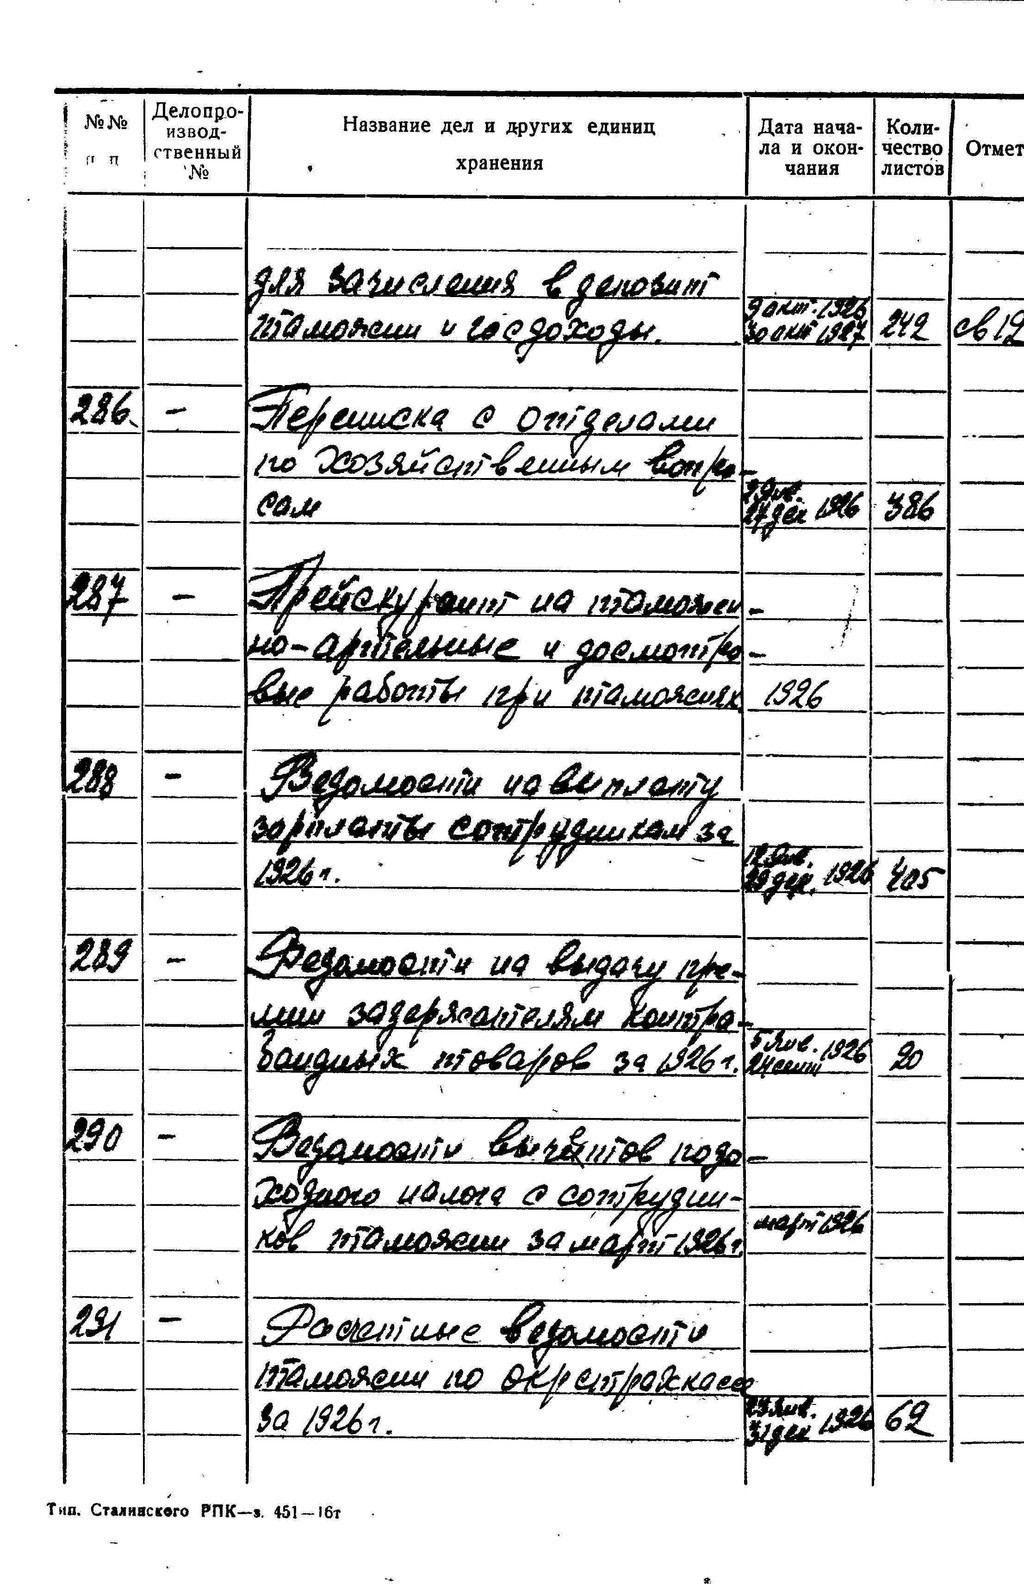 №№
п п
Делопро-
извод-
ственный
№
Название дел и других единиц
хранения
Дата нача-
ла и окон-
чания
Коли-
чество
листов
Отмет
для зачисления в депозит
таможни и госдоходы.
9 окт. 1926
30 окт 1927
242
св 12
286.
-
Переписка с отделами
по хозяйственным вопро-
сам
2 Янв.
27 дек 1926
386
287
-
Прейскурант на таможен-
но-артельные и досмотро-
вые работы при таможнях.
1926
288
-
Ведомости на выплату
зарплаты сотрудникам за
1926 г.
12 Янв.
29 дек. 1926
405
289
-
Ведомости на выдачу пре-
мии задержателям контра-
бандных товаров за 1926 г.
5 Янв. 1926
24 сент
20
290
-
Ведомости вычетов подо-
ходного налога с сотрудни-
ков таможни за март 1926 г.
март 1926
291
-
Расчетные ведомости
таможни по окрстрахкассе
за 1926 г.
23 Янв.
31 дек 1926
62
Тип. Сталинского РПК—з. 451—16т